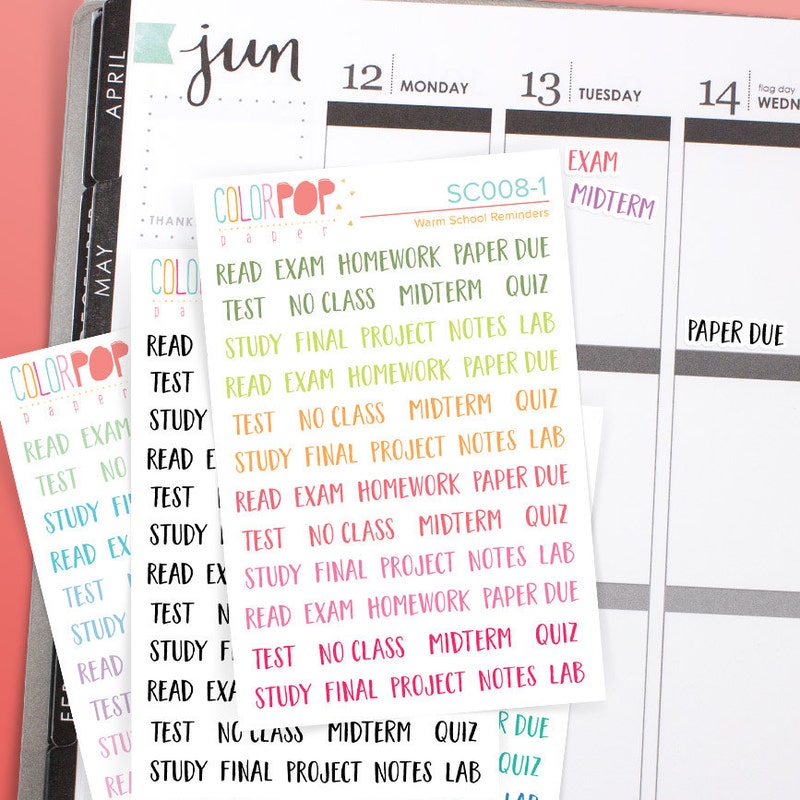 APRIL
MAY
jun
12 MONDAY
13 TUESDAY
14 flag day
EXAM
MIDTERM
PAPER DUE
COLORPOP
paper
SC008-1
Warm School Reminders
READ EXAM HOMEWORK PAPER DUE
TEST NO CLASS MIDTERM QUIZ
STUDY FINAL PROJECT NOTES LAB
READ EXAM HOMEWORK PAPER DUE
TEST NO CLASS MIDTERM QUIZ
STUDY FINAL PROJECT NOTES LAB
READ EXAM HOMEWORK PAPER DUE
TEST NO CLASS MIDTERM QUIZ
STUDY FINAL PROJECT NOTES LAB
READ EXAM HOMEWORK PAPER DUE
TEST NO CLASS MIDTERM QUIZ
STUDY FINAL PROJECT NOTES LAB
READ
TEST
STUDY
READ
TEST
STUDY
READ
TEST
STUDY
READ
TEST NO CLASS MIDTERM QUIZ
STUDY FINAL PROJECT NOTES LAB
COLORPOP
paper
READ EXAM
TEST NO
STUDY
READ
TEST
STUDY
READ
TEST
DUE
QUIZ
LAB